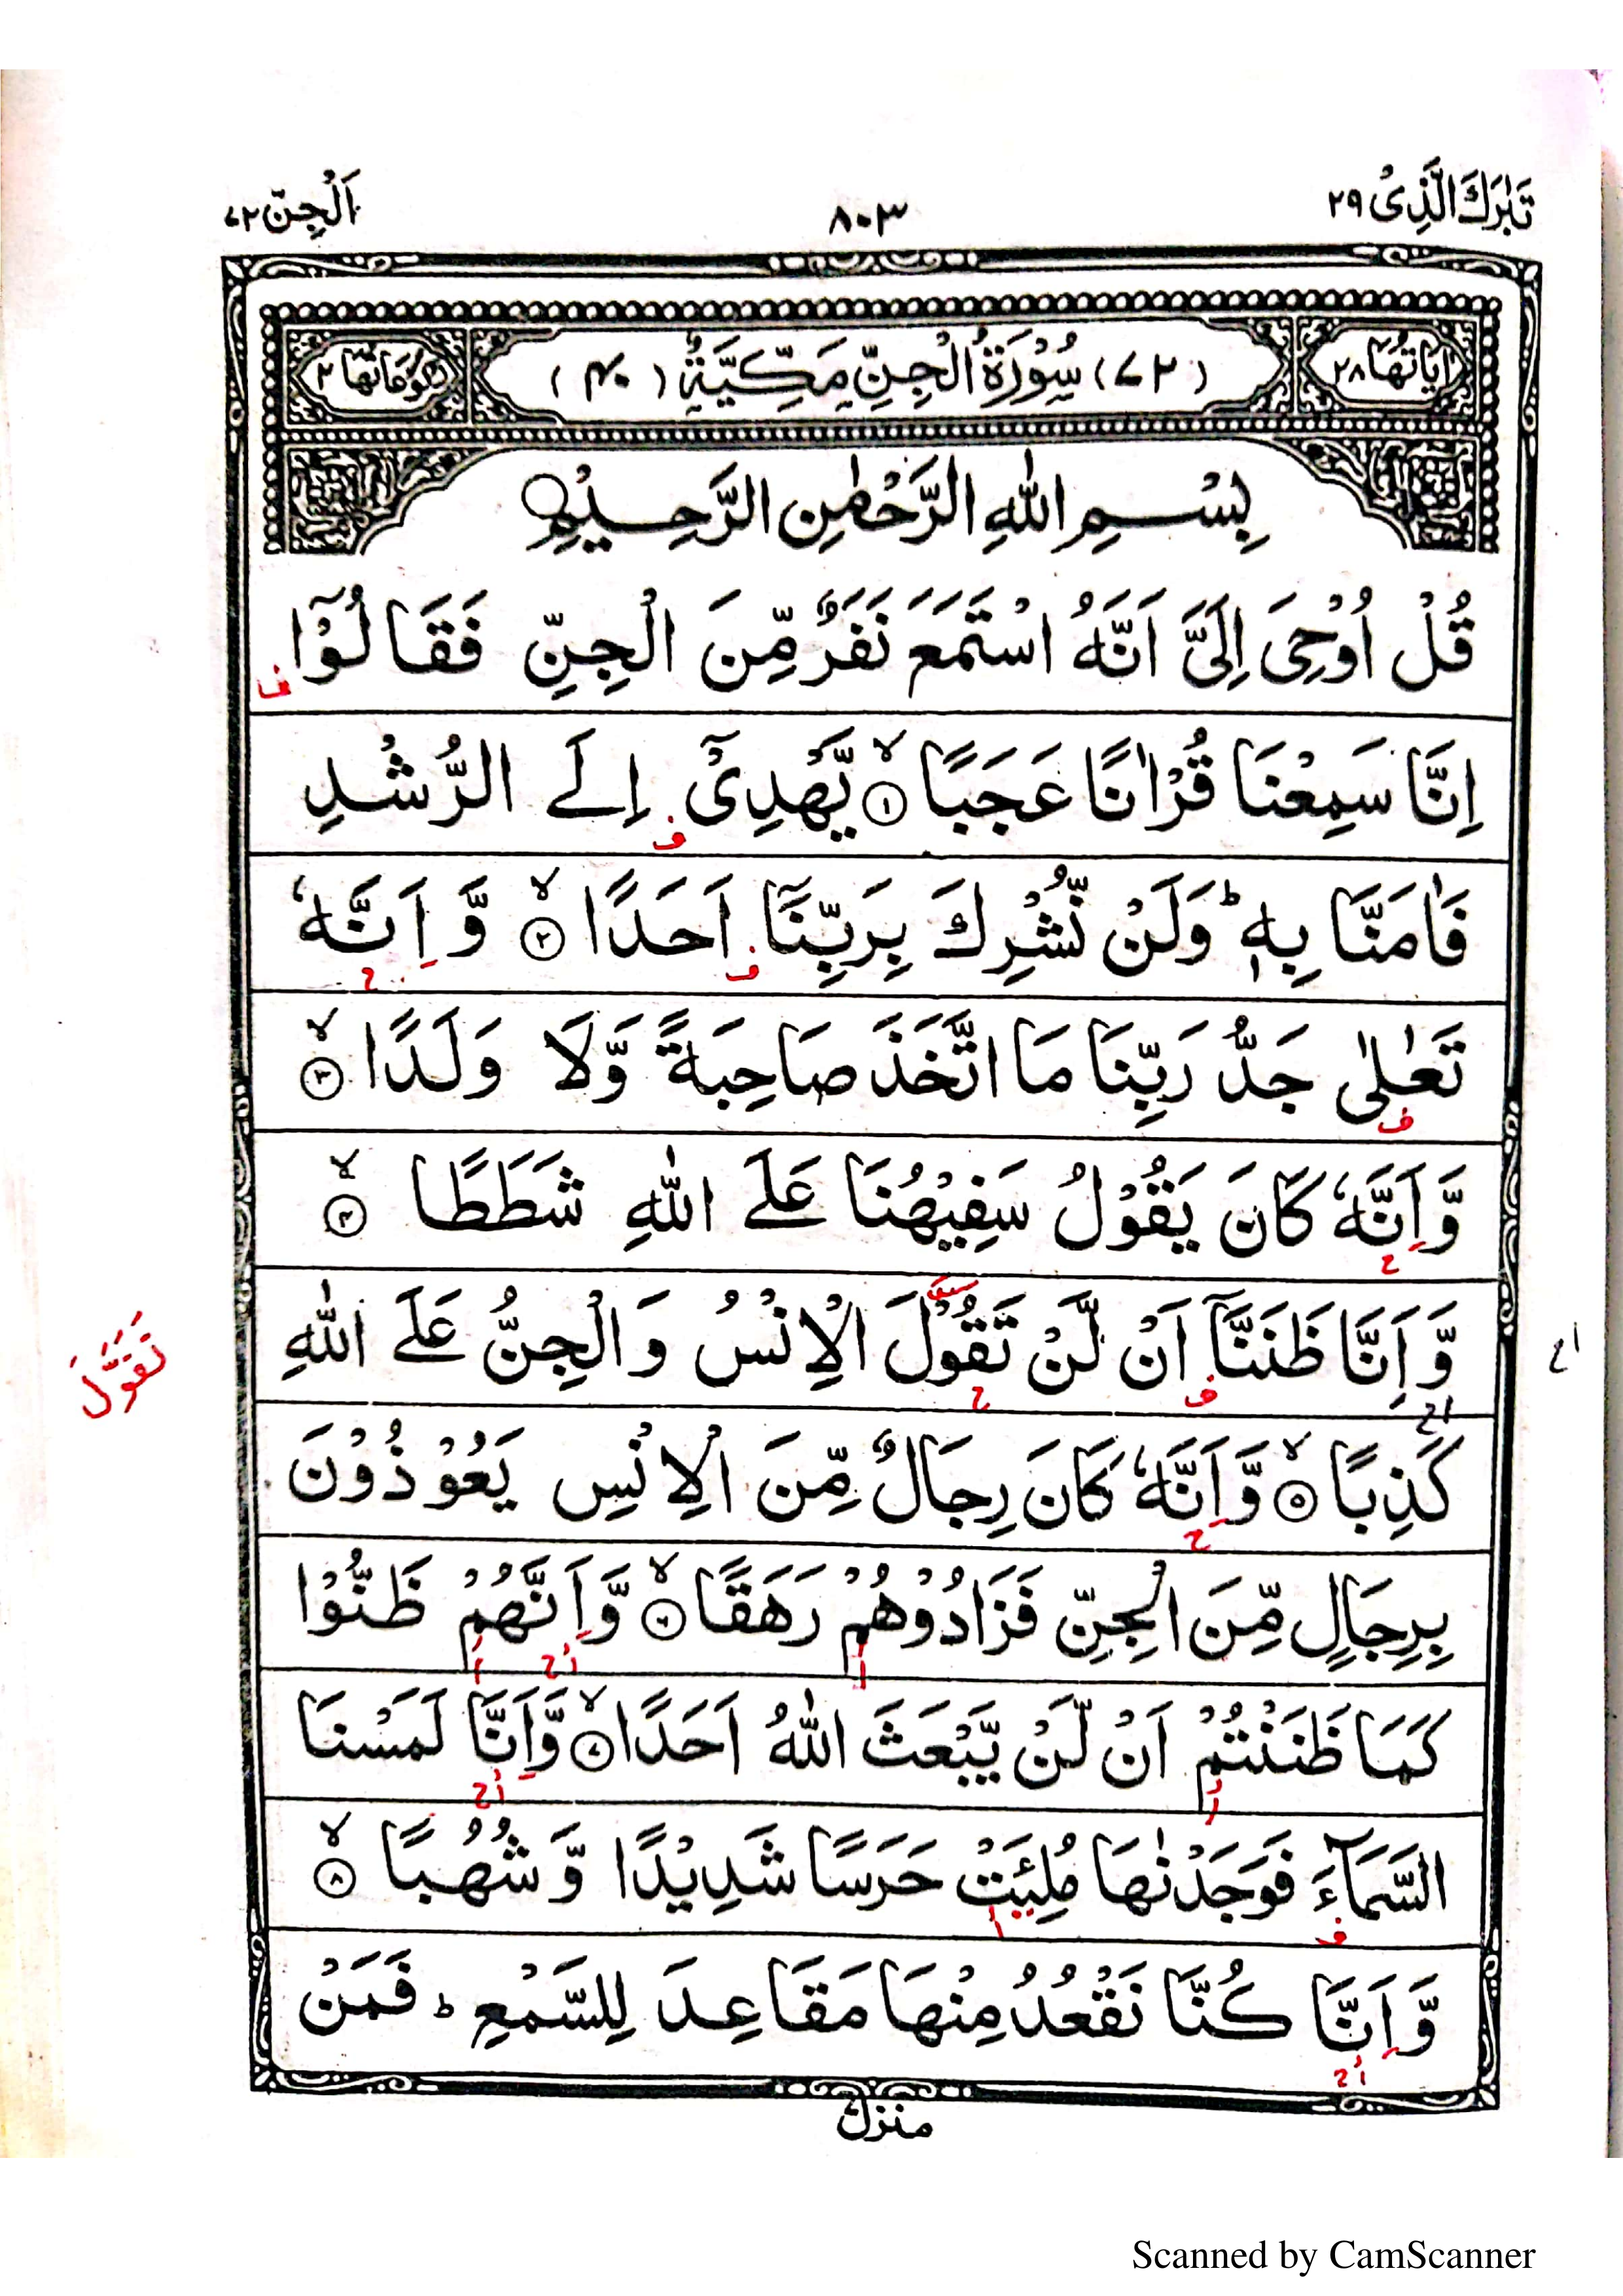 تَبٰرَكَ الَّذِىْ ٢٩
٨٠٣
اَلْجِنّ ٧٢
اٰيَاتُهَا ٢٨
(٧٢) سُوْرَةُ الْجِنِّ مَكِّيَّةٌ (٤٠)
رُكُوْعَاتُهَا ٢
بِسْمِ اللهِ الرَّحْمٰنِ الرَّحِيْمِ
قُلْ اُوْحِىَ اِلَىَّ اَنَّهُ اسْتَمَعَ نَفَرٌ مِّنَ الْجِنِّ فَقَالُوْٓا
ف
اِنَّا سَمِعْنَا قُرْاٰنًا عَجَبًا ۙ‏ ١ يَّهْدِىْٓ اِلَى الرُّشْدِ
ف
فَاٰمَنَّا بِهٖ ؕ وَلَنْ نُّشْرِكَ بِرَبِّنَآ اَحَدًا ۙ‏ ٢ وَّ اَنَّهٗ
ف ح
تَعٰلٰى جَدُّ رَبِّنَا مَا اتَّخَذَ صَاحِبَةً وَّلَا وَلَدًا ۙ‏ ٣
ف
وَّاَنَّهٗ كَانَ يَقُوْلُ سَفِيْهُنَا عَلَى اللهِ شَطَطًا ۙ‏ ٤
ح
وَّ اَنَّا ظَنَنَّآ اَنْ لَّنْ تَقُوْلَ الْاِنْسُ وَالْجِنُّ عَلَى اللهِ
اح
تَقَوَّلَ
ف ح
اح
كَذِبًا ۙ‏ ٥ وَّاَنَّهٗ كَانَ رِجَالٌ مِّنَ الْاِنْسِ يَعُوْذُوْنَ
ح
بِرِجَالٍ مِّنَ الْجِنِّ فَزَادُوْهُمْ رَهَقًا ۙ‏ ٦ وَّاَنَّهُمْ ظَنُّوْا
ا اح ا
كَمَا ظَنَنْتُمْ اَنْ لَّنْ يَّبْعَثَ اللهُ اَحَدًا ۙ‏ ٧ وَّاَنَّا لَمَسْنَا
ا اح
السَّمَآءَ فَوَجَدْنٰهَا مُلِئَتْ حَرَسًا شَدِيْدًا وَّ شُهُبًا ۙ‏ ٨
ف ا
وَّ اَنَّا كُنَّا نَقْعُدُ مِنْهَا مَقَاعِدَ لِلسَّمْعِ ؕ فَمَنْ
اح
منزل
Scanned by CamScanner